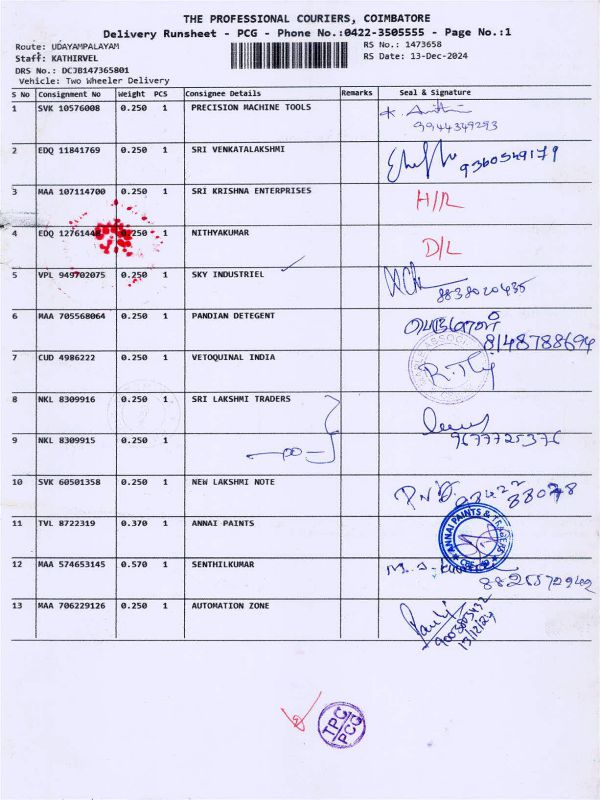 THE PROFESSIONAL COURIERS, COIMBATORE
Delivery Runsheet - PCG - Phone No.:0422-3505555 - Page No.:1
Route: UDAYAMPALAYAM RS No.: 1473658
Staff: KATHIRVEL RS Date: 13-Dec-2024
DRS No.: DCJB147365801
Vehicle: Two Wheeler Delivery
S No Consignment No Weight PCS Consignee Details Remarks Seal & Signature
1 SVK 10576008 0.250 1 PRECISION MACHINE TOOLS
9944349293
2 EDQ 11841769 0.250 1 SRI VENKATALAKSHMI
9360549179
3 MAA 107114700 0.250 1 SRI KRISHNA ENTERPRISES H/R
4 EDQ 1276144 0.250 1 NITHYAKUMAR D/L
5 VPL 949702075 0.250 1 SKY INDUSTRIEL
8838020435
6 MAA 705568064 0.250 1 PANDIAN DETEGENT
8148788694
7 CUD 4986222 0.250 1 VETOQUINAL INDIA
8 NKL 8309916 0.250 1 SRI LAKSHMI TRADERS
9677725376
9 NKL 8309915 0.250 1
10 SVK 60501358 0.250 1 NEW LAKSHMI NOTE
11 TVL 8722319 0.370 1 ANNAI PAINTS
ANNAI PAINTS & TRADERS
12 MAA 574653145 0.570 1 SENTHILKUMAR
13 MAA 706229126 0.250 1 AUTOMATION ZONE
9003803432
13/12/24
TPC
PCG